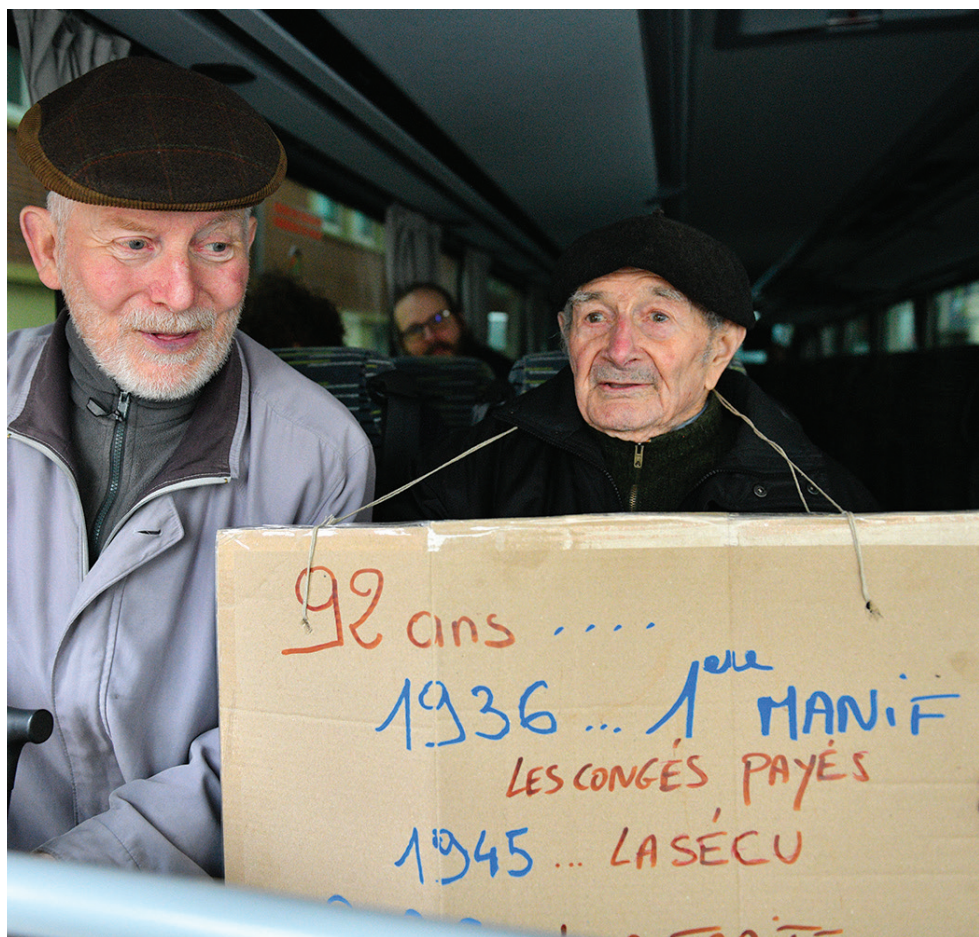 92 ans ....
1936 ... 1ere MANiF
LES CONGÉS PAYÉS
1945 ... LA SÉCU